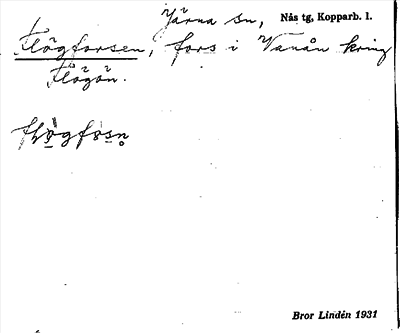 Järna sn, Nås tg, Kopparb. l.
Högforsen, fors i Vanån kring
Högön.
Bror Lindén 1931